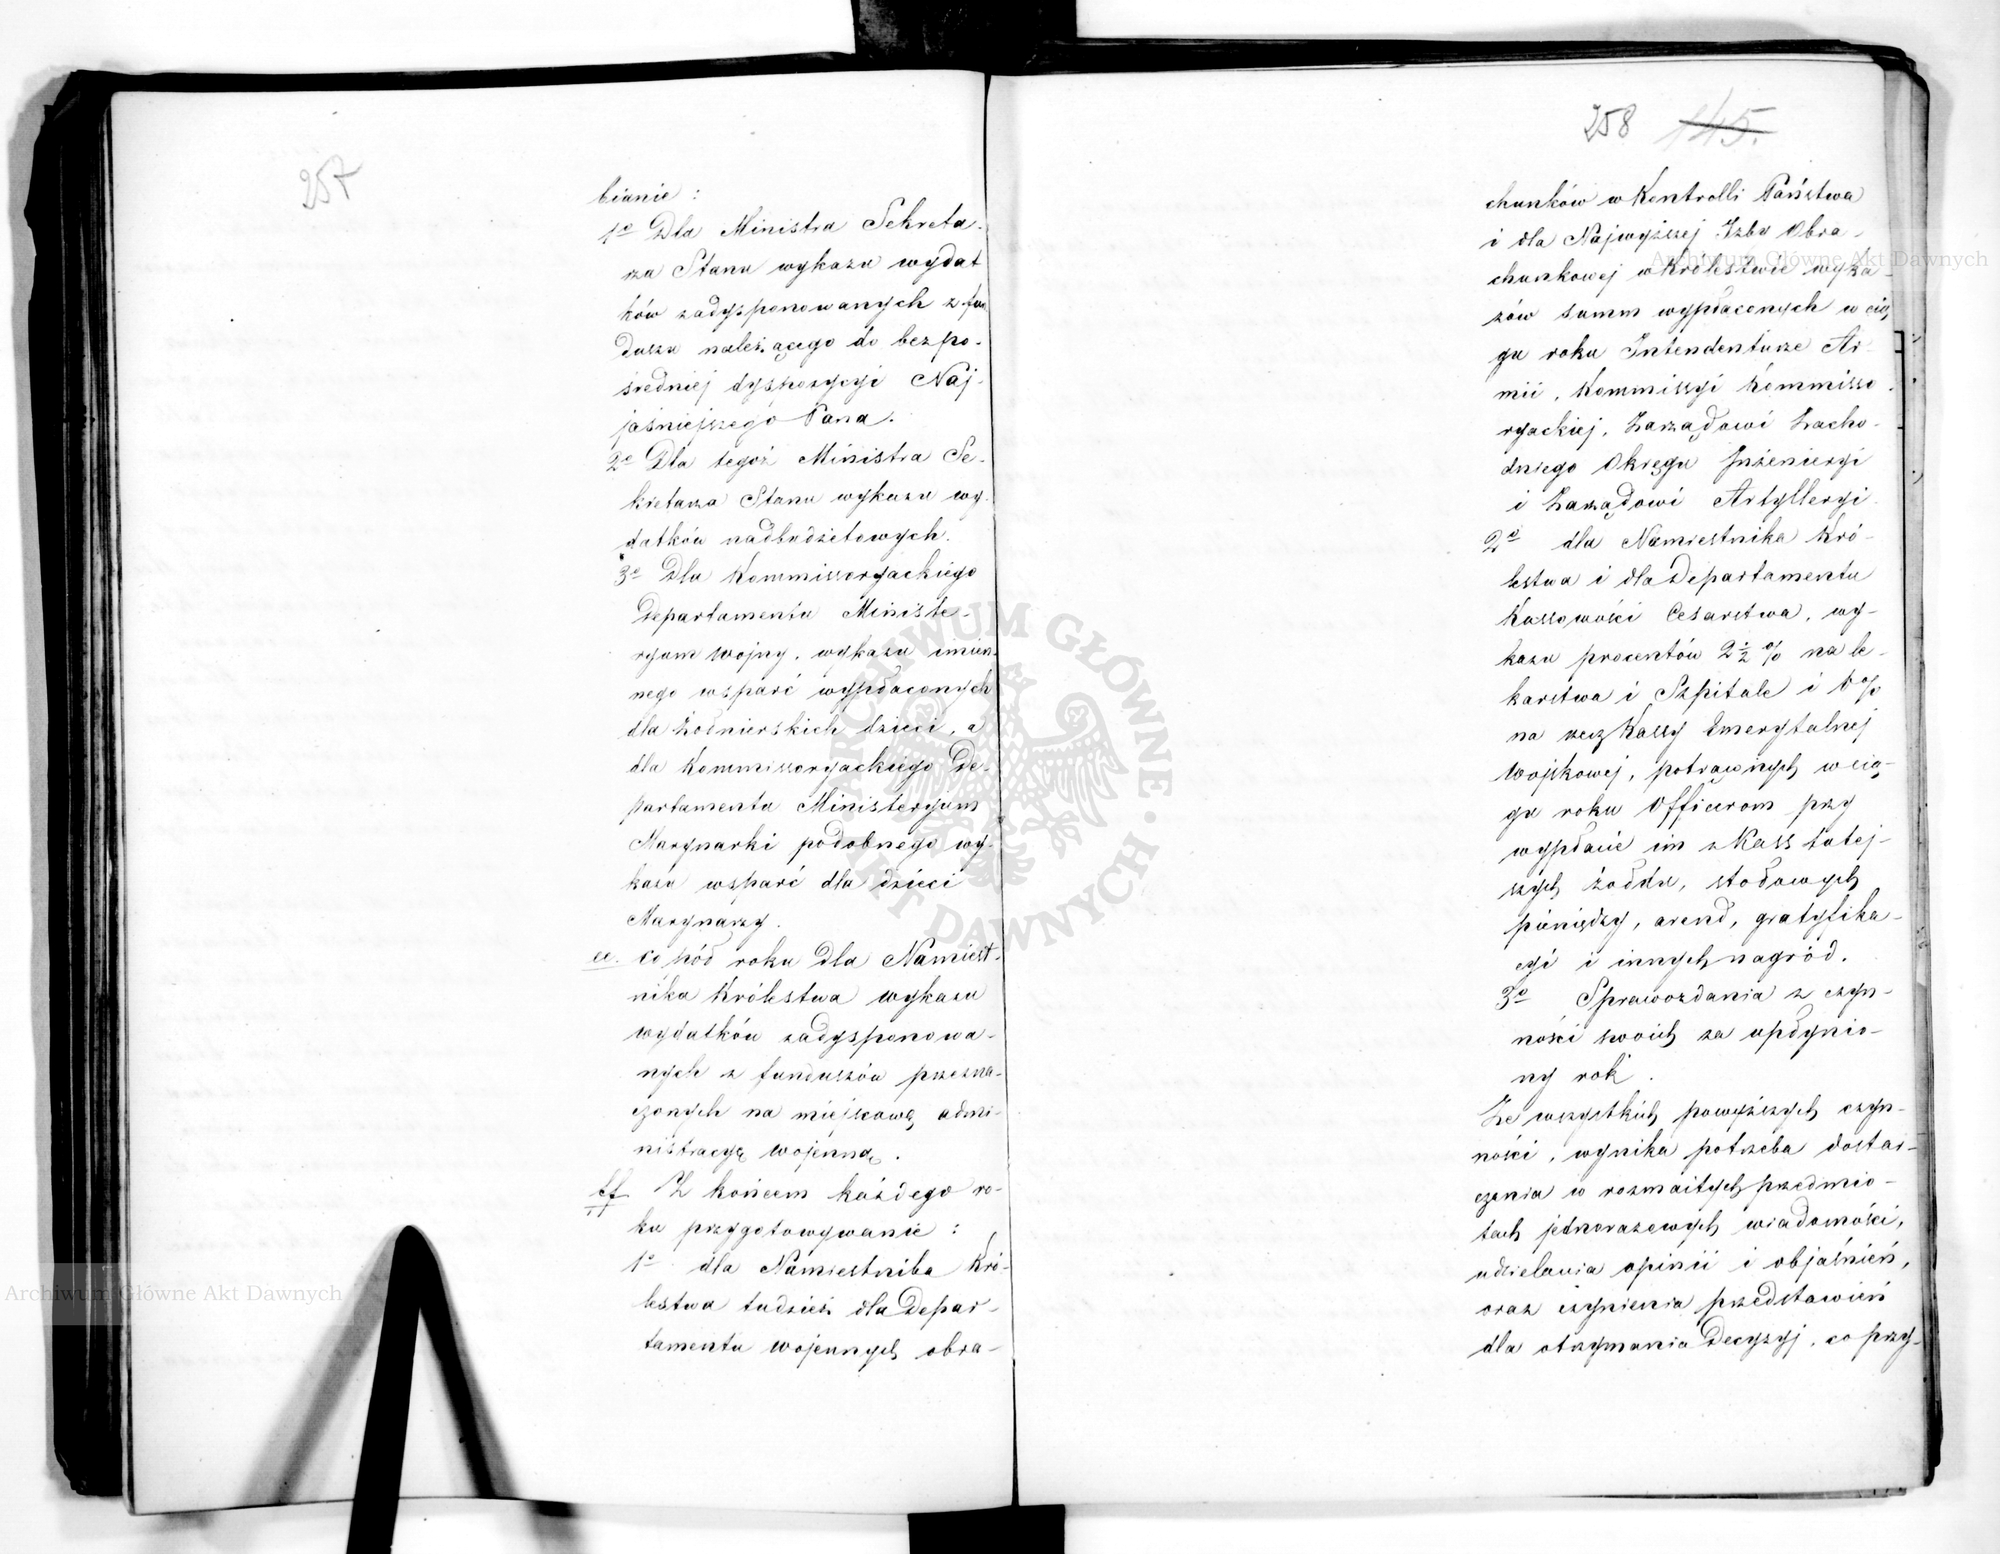 257
bianie :
1o Dla Ministra Sekreta-
rza Stanu wykazu wydat
ków zadysponowanych z fun
duszu należącego do bezpo-
średniej dyspozycyi Naj-
jaśniejszego Pana.
2o Dla tegoż Ministra Se-
kretarza Stanu wykazu wy-
datków nadbudżetowych.
3o Dla Kommissoryackiego
Departamentu Ministe-
ryum Wojny, wykazu imien-
nego wsparć wypłaconych
dla żołnierskich dzieci, a
dla Kommissoryackiego De-
partamentu Ministeryum
Marynarki podobnego wy-
kazu wsparć dla dzieci
Marynarzy.
ee. co pół roku dla Namiest-
nika Królestwa wykazu
wydatków zadysponowa-
nych z funduszów przezna-
czonych na miejscową admi-
nistracyę wojenną.
ff Z końcem każdego ro-
ku przygotowywanie :
1o dla Namiestnika Kró-
lestwa tudzież dla Depar-
tamentu wojennych obra-
258 145.
chunków w Kontrolli Państwa
i dla Najwyższej Izby Obra-
chunkowej w Królestwie wyka-
zów summ wypłaconych w cią
gu roku Intendenturze Ar-
mii, Kommissyi Kommisso-
ryackiej, Zarządowi Zacho-
dniego Okręgu Inżenieryi
i Zarządowi Artylleryi.
2o dla Namiestnika Kró-
lestwa i dla Departamentu
Kassowości Cesarstwa, wy-
kazu procentów 2 1/2 % na le-
karstwa i Szpitale i %
na rzecz Kassy Emerytalnej
Wojskowej, potrąconych w cią-
gu roku Officerom przy
wypłacie im z Kass tutej-
szych żołdu, stołowych
pieniędzy, arend, gratyfika-
cyi i innych nagród.
3o Sprawozdania z czyn-
ności swoich za upłynio-
ny rok.
Ze wszystkich powyższych czyn-
ności, wynika potrzeba dostar-
czania w rozmaitych przedmio-
tach jednorazowych wiadomości,
udzielania opinii i objaśnień,
oraz czynienia przedstawień
dla otrzymania Decyzyj, co przy-
Archiwum Główne Akt Dawnych
Archiwum Główne Akt Dawnych
ARCHIWUM GŁÓWNE AKT DAWNYCH